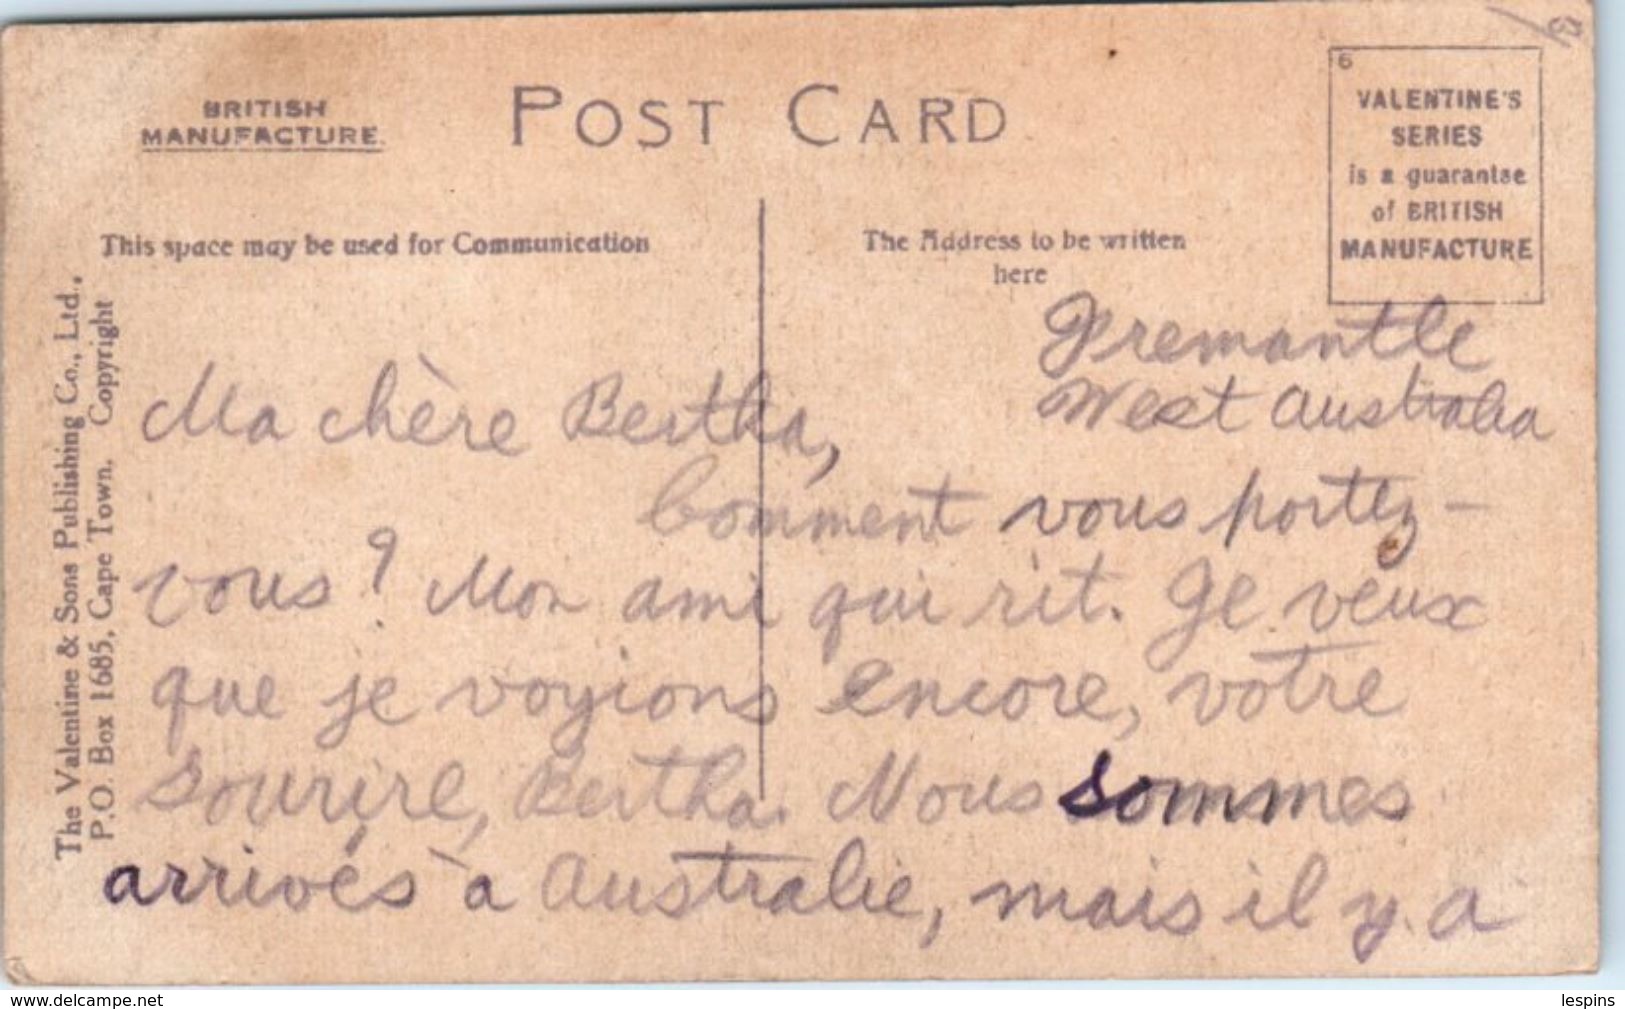 BRITISH
MANUFACTURE.
POST CARD
6
VALENTINE'S
SERIES
is a guarantee
of BRITISH
MANUFACTURE
This space may be used for Communication
The Address to be written
here
The Valentine & Sons Publishing Co., Ltd.,
P.O. Box 1685, Cape Town. Copyright
Fremantle
West Australia
Ma chère Bertha,
Comment vous portez-
vous? Mon ami qui rit. Je veux
que je voyions encore, votre
sourire, Bertha. Nous sommes
arrivés à Australie, mais il y a
www.delcampe.net
lespins